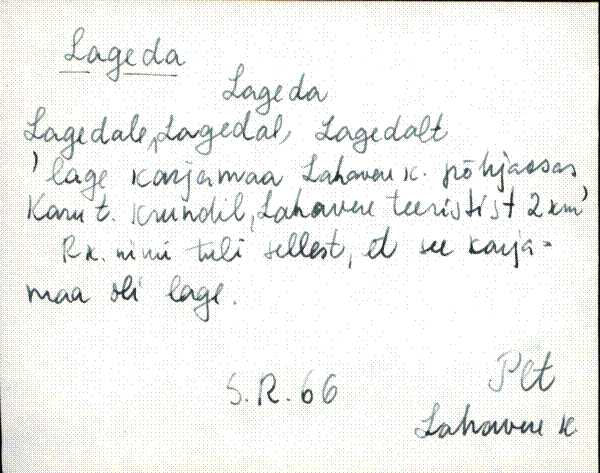 Lageda
Lageda
Lagedale, Lagedal, Lagedalt
'lage karjamaa Lahavere k. põhjaosas
Karu t. krundil, Lahavere teeristist 2 km'
Rk. nimi tuli sellest, et see karja-
maa oli lage.
S.R. 66
Plt
Lahavere k